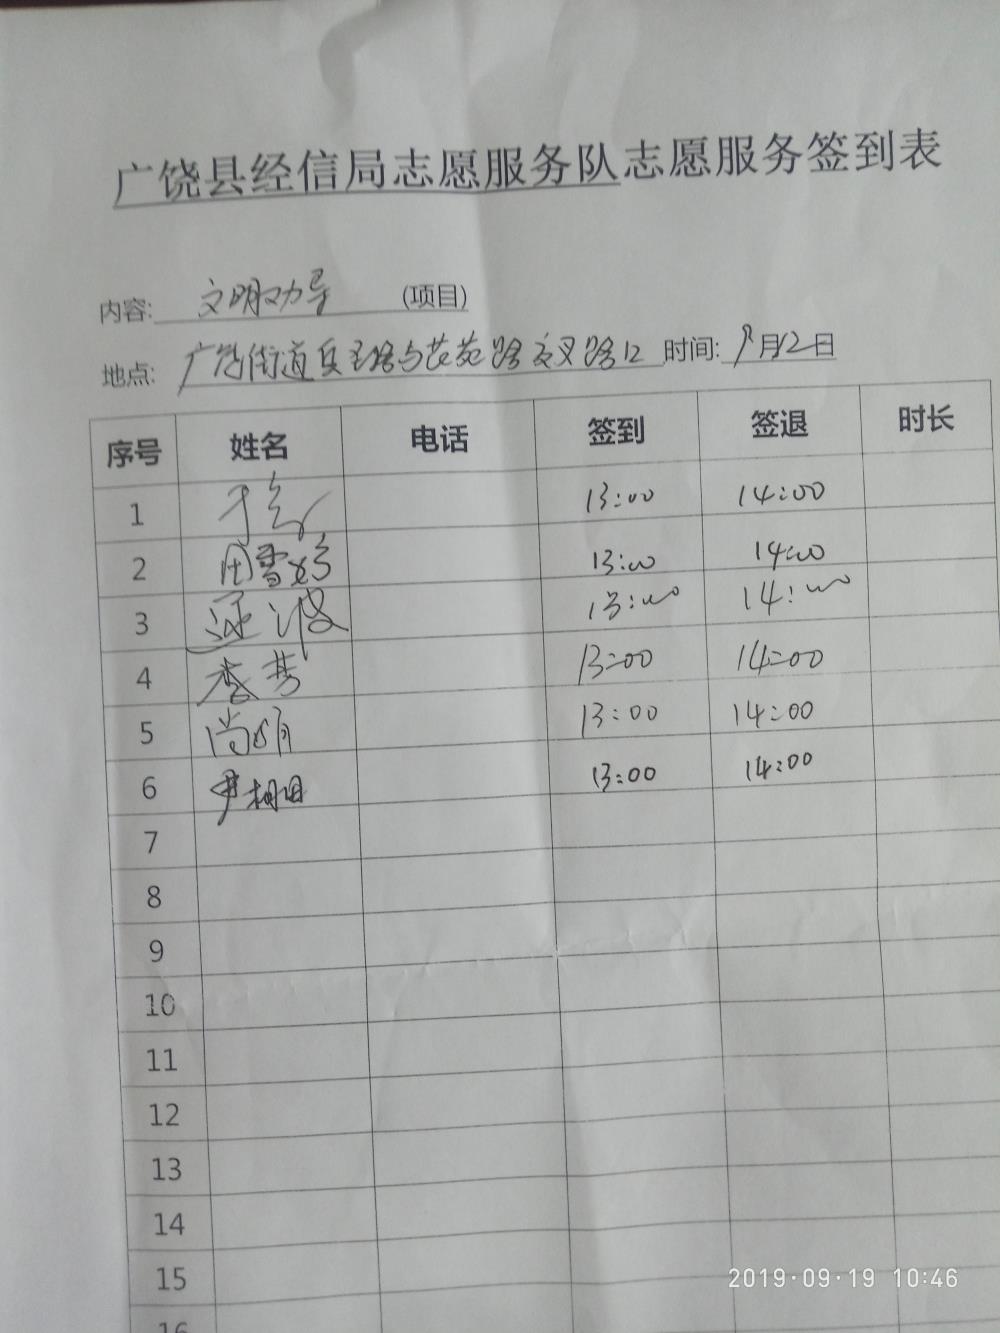 广饶县经信局志愿服务队志愿服务签到表
内容: 文明劝导 (项目)
地点: 广饶街道兵圣路与花苑路交叉路口 时间: 9月12日
序号 姓名 电话 签到 签退 时长
1 13:00 14:00
2 13:00 14:00
3 13:00 14:00
4 李芳 13:00 14:00
5 尚娟 13:00 14:00
6 13:00 14:00
7
8
9
10
11
12
13
14
15
16
2019·09·19 10:46